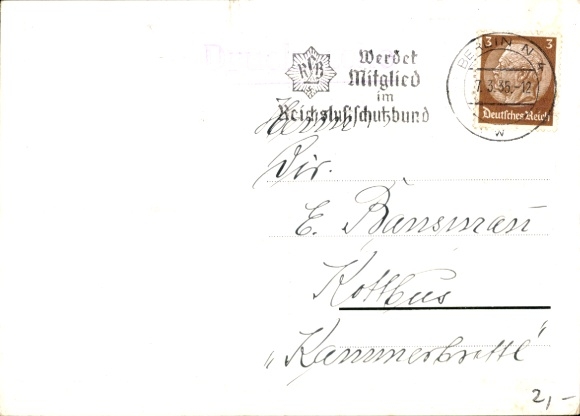 RLB
Werdet
Mitglied
im
Reichsluftschutzbund
BERLIN N 4
7.3.35.-12
w
3 3
Deutsches Reich
Herrn
Dir.
E. Bansmann
Kottbus
„Kammerbrettl"
2,-